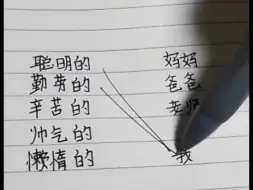 聪明的 妈妈
勤劳的 爸爸
辛苦的 老师
帅气的
懒惰的 我